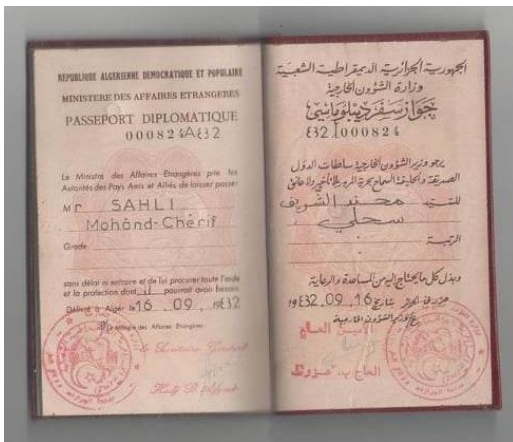 REPUBLIQUE ALGERIENNE DEMOCRATIQUE ET POPULAIRE
MINISTERE DES AFFAIRES ETRANGERES
PASSEPORT DIPLOMATIQUE
000824
Le Ministre des Affaires Etrangères prie les
Autorités des Pays Amis et Alliés de laisser passer
Mr SAHLI
Mohând-Chérif
Grade
sans délai ni entrave et de lui procurer toute l'aide
et la protection dont il pourrait avoir besoin.
Délivré à Alger le 16 . 09 .
Le Ministre des Affaires Etrangères
Le Secrétaire Général
الجمهورية الجزائرية الديمقراطية الشعبية
وزارة الشؤون الخارجية
جواز سفر ديبلوماسي
000824
يرجو وزير الشؤون الخارجية سلطات الدول
الصديقة والحليفة السماح بحرية المرور بلا تأخير ولا عائق
للسيد محند الشريف
سحلي
الرتبة
وبذل كل ما يحتاج إليه من المساعدة والرعاية
بتاريخ 16 . 09 .
وزير الشؤون الخارجية
الأمين العام